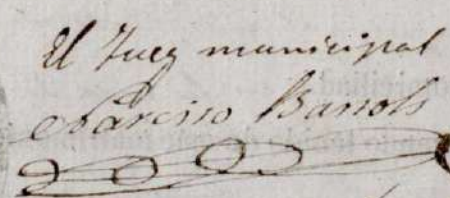 El Juez municipal
Narciso Barrols